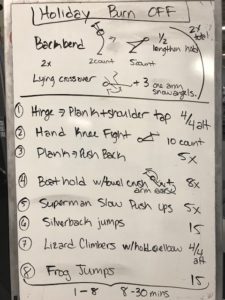 Holiday Burn OFF
Backbend 1/2 lengthen hold 2x total
2x 2count 5count
Lying crossover + 3 one arm snow angels.
① Hinge → Plank + shoulder tap 4/4 alt
② Hand Knee Fight 10 count
③ Plank → Push Back 5x
④ Boat hold w/towel crush + arm 8x
⑤ Superman Slow Push ups 5x
⑥ Silverback jumps 15
⑦ Lizard Climbers w/hold@elbow 4/4 alt
⑧ Frog Jumps 15
1-8 8-30 mins